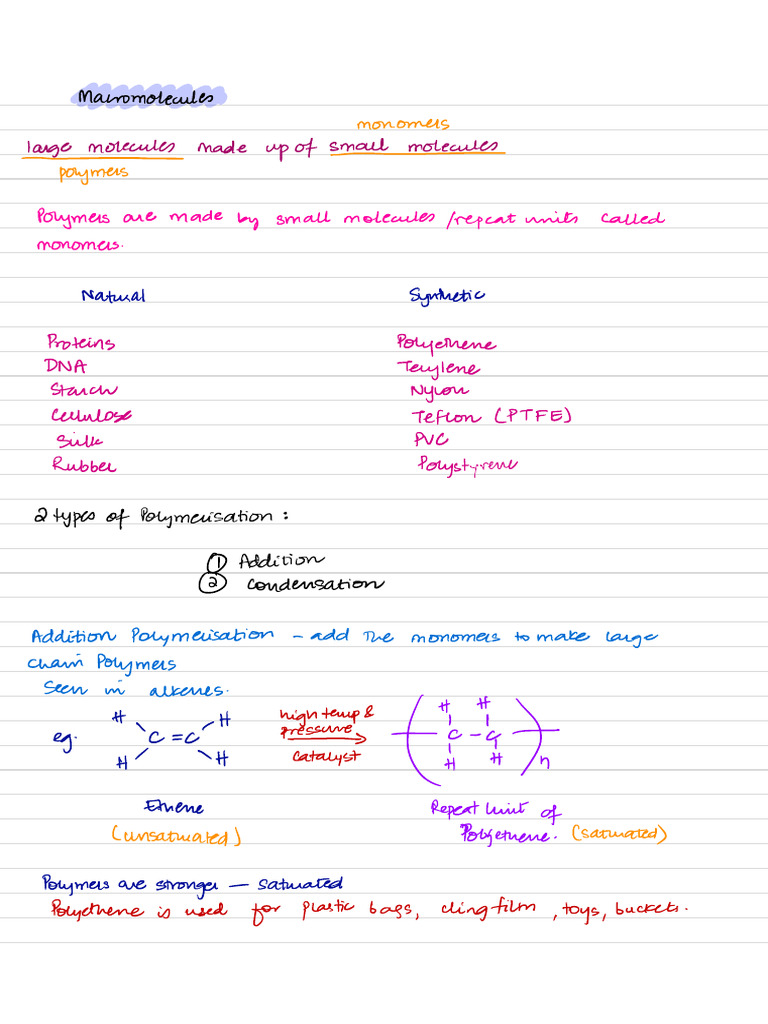 Macromolecules
monomers
large molecules made up of small molecules
polymers
Polymers are made by small molecules/repeat units called
monomers.
Natural Synthetic
Proteins Polyethene
DNA Terylene
Starch Nylon
Cellulose Teflon (PTFE)
Silk PVC
Rubber Polystyrene
2 types of Polymerisation :
① Addition
② Condensation
Addition Polymerisation - add the monomers to make large
chain Polymers
Seen in alkenes.
H H high temp & H H
eg. C = C pressure C - C
H H catalyst H H n
Ethene Repeat Unit of
(unsaturated) Polyethene. (saturated)
Polymers are stronger — saturated
Polyethene is used for plastic bags, cling film, toys, buckets.